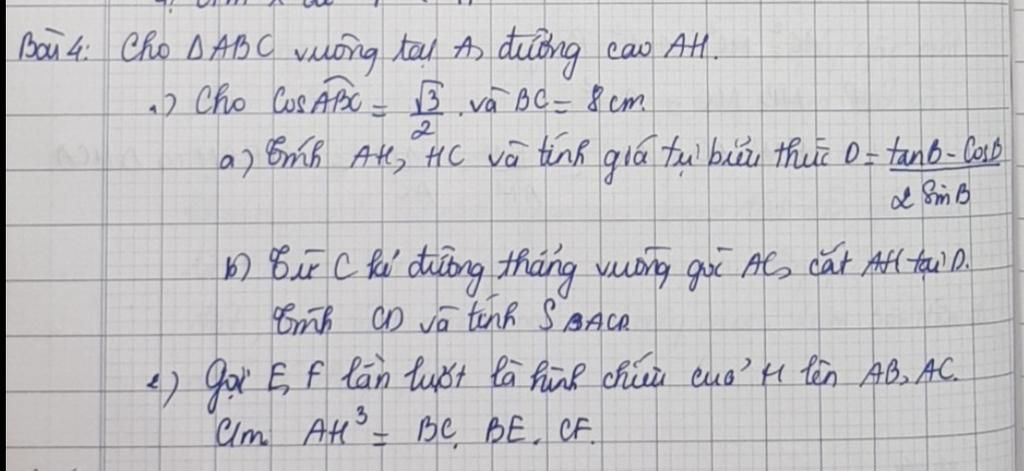 Bài 4: Cho ΔABC vuông tại A, đường cao AH.
1) Cho Cos ABC = √3/2 và BC = 8 cm.
a) Tính AH, HC và tính giá trị biểu thức D = tanB - CosB / 2 SinB
b) Từ C kẻ đường thẳng vuông góc AC, cắt AH tại D.
Tính CD và tính S BACD
2) Gọi E, F lần lượt là hình chiếu của H lên AB, AC.
Cm AH³ = BC. BE. CF.